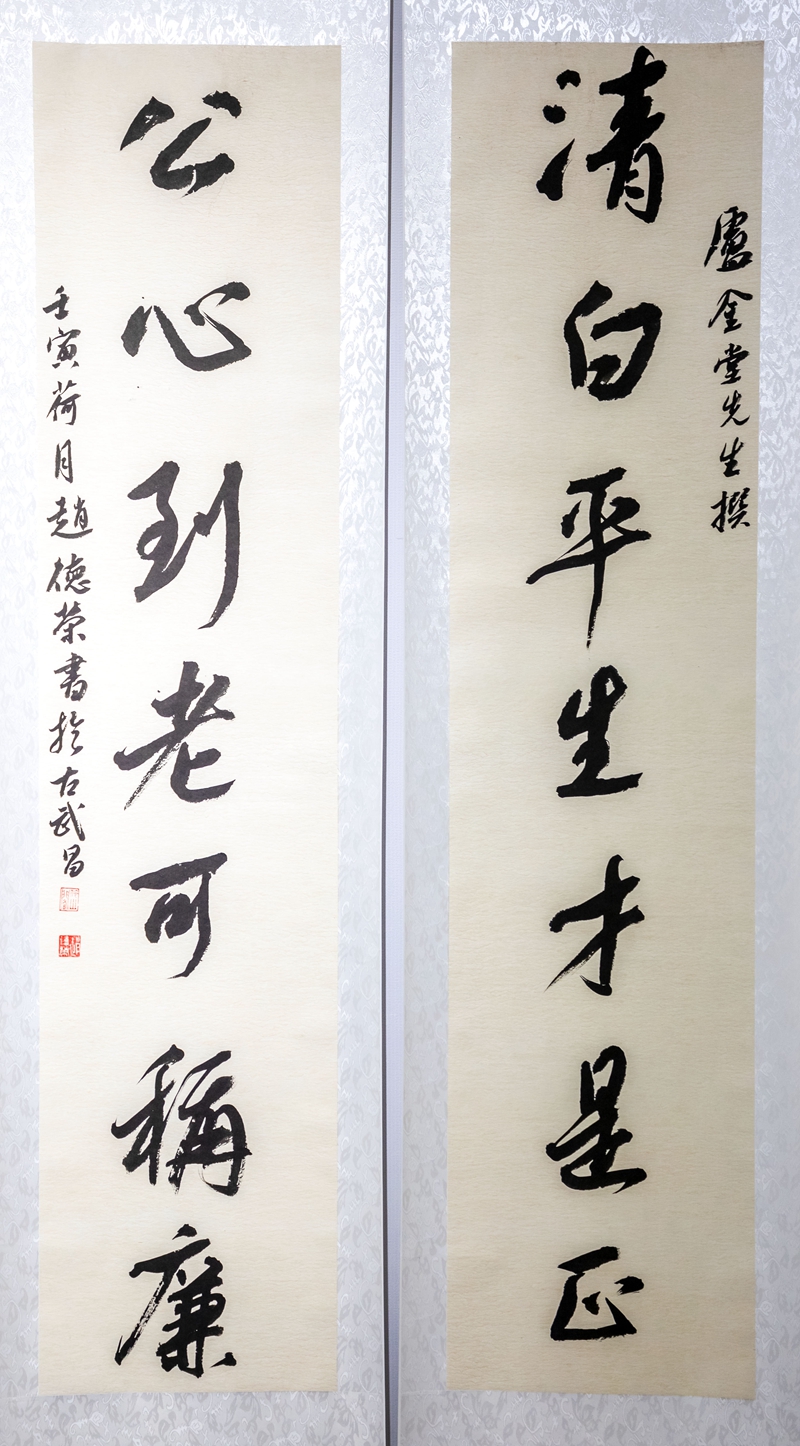 盧金堂先生撰
清白平生才是正
公心到老可稱廉
壬寅荷月趙德榮書於古武昌